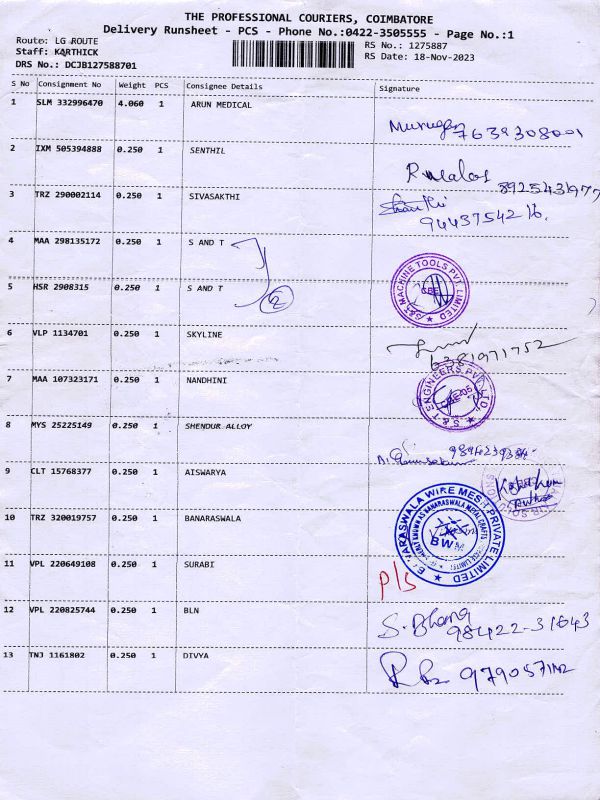 THE PROFESSIONAL COURIERS, COIMBATORE
Delivery Runsheet - PCS - Phone No.:0422-3505555 - Page No.:1
Route: LG ROUTE
Staff: KARTHICK
DRS No.: DCJB127588701
RS No.: 1275887
RS Date: 18-Nov-2023
S No Consignment No Weight PCS Consignee Details Signature
1 SLM 332996470 4.060 1 ARUN MEDICAL Murugan 7639308001
2 IXM 505394888 0.250 1 SENTHIL 8925431977
3 TRZ 290002114 0.250 1 SIVASAKTHI 9443754216.
4 MAA 298135172 0.250 1 S AND T
2
5 HSR 2908315 0.250 1 S AND T S&T MACHINE TOOLS PVT. LIMITED CBE
6 VLP 1134701 0.250 1 SKYLINE 6381971752
7 MAA 107323171 0.250 1 NANDHINI S & T ENGINEERS PVT. LTD.
8 MYS 25225149 0.250 1 SHENDUR ALLOY
9 CLT 15768377 0.250 1 AISWARYA
10 TRZ 320019757 0.250 1 BANARASWALA WIRE MESH PRIVATE LIMITED BWM
11 VPL 220649108 0.250 1 SURABI P/S
12 VPL 220825744 0.250 1 BLN S. Bhang 98422-31643
13 TNJ 1161802 0.250 1 DIVYA